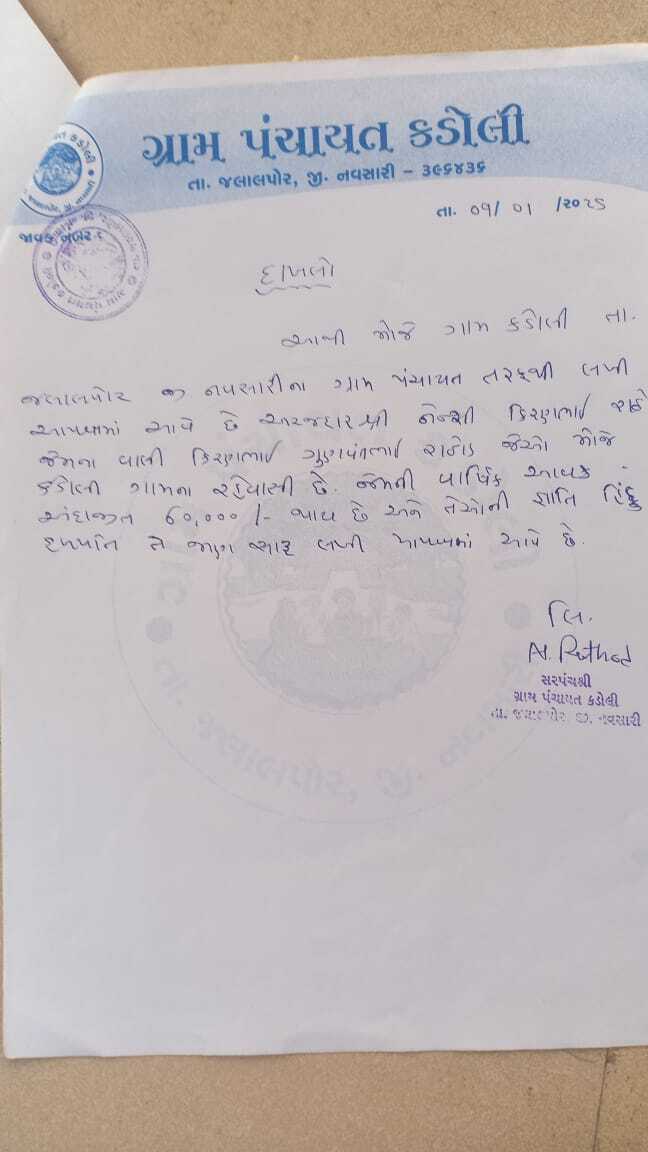 ગ્રામ પંચાયત કડોલી
તા. જલાલપોર, જી. નવસારી - ૩૯૬૪૩૬
તા. ૦૧/ ૦૧ /૨૦૨૬
જાવક નંબર ૬
દાખલો
આથી મોજે ગામ કડોલી તા.
જલાલપોર જી નવસારીના ગ્રામ પંચાયત તરફથી લખી
આપવામાં આવે છે અરજદાર શ્રી કિરણભાઈ
જેમના વાલી કિરણભાઈ ગુણવંતભાઈ રાઠોડ જેઓ મોજે
કડોલી ગામના રહેવાસી છે. જેમની વાર્ષિક આવક
અંદાજીત ૬૦,૦૦૦ /- થાય છે અને તેઓની જ્ઞાતિ હિંદુ
હળપતિ તે જાણ સારૂ લખી આપવામાં આવે છે.
લિ.
N. Rathod
સરપંચશ્રી
ગ્રામ પંચાયત કડોલી
તા. જલાલપોર, જી. નવસારી
તા. જલાલપોર, જી.